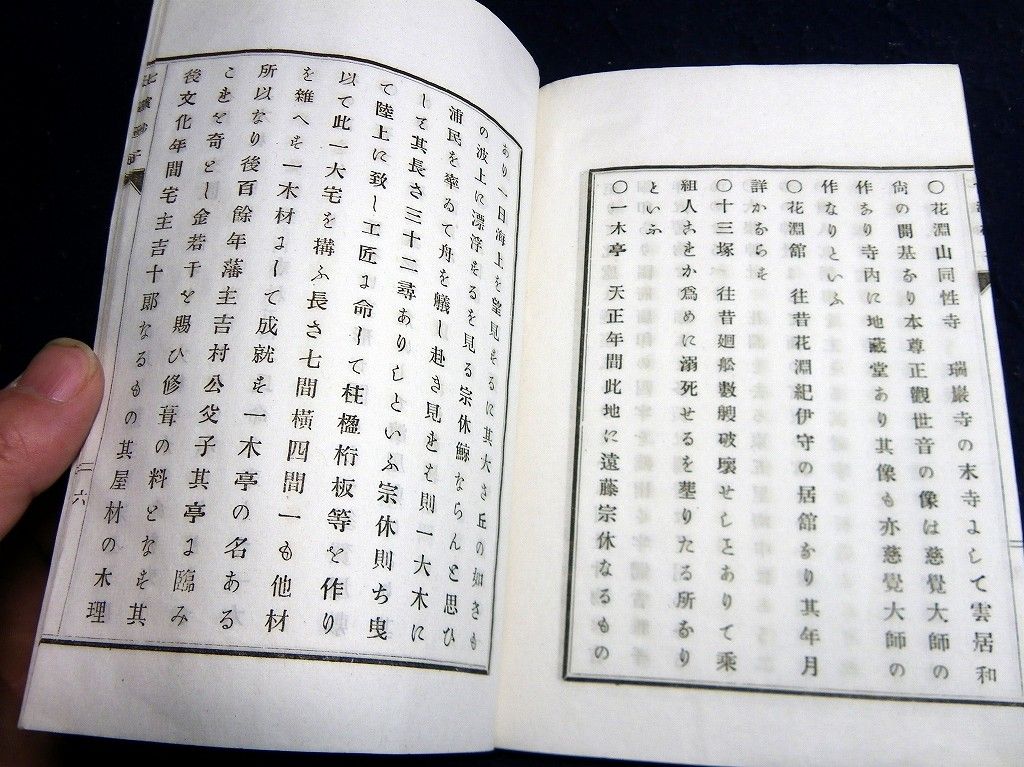 ○花淵山同性寺　瑞巖寺の末寺よして雲居和
尙の開基なり本尊正觀世音の像は慈覺大師の
作あり寺内に地藏堂あり其像も亦慈覺大師の
作なりといふ
○花淵館　往昔花淵紀伊守の居館なり其年月
詳かならを
○十三塚　往昔廻舩數艘破壞せしとありて乘
組人さをか爲めに溺死せるを塟りたる所なり
といふ
○一木亭　天正年間此地に遠藤宗休なるもの
あり一日海上を望見をるに其大さ丘の如さも
の波上に漂浮をるを見る宗休鯨ならんと思ひ
浦民を率ゐて舟を艤し赴き見をを則一大木に
して其長さ三十二尋ありしといふ宗休則ち曳
て陸上に致し工匠よ命して柱楹桁板等を作り
以て此一大宅を搆ふ長さ七間横四間一も他材
を雜へを一木材よして成就を一木亭の名ある
所以なり後百餘年藩主吉村公父子其亭よ臨み
こをを奇とし金若干を賜ひ修葺の料となを其
後文化年間宅主吉十郎なるもの其屋材の木理
六